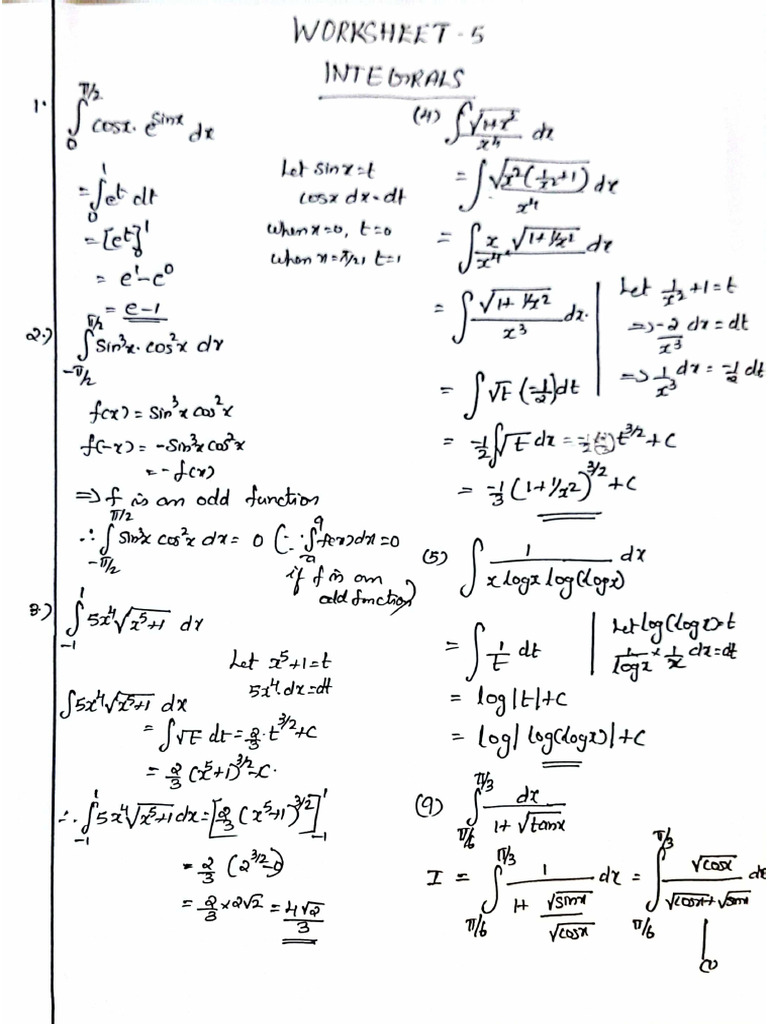 WORKSHEET - 5
INTEGRALS
1.
∫₀^{π/2} cosx. e^{sinx} dx
= ∫₀¹ e^t dt
Let sinx = t
cosx dx = dt
= [e^t]₀¹
when x=0, t=0
= e¹ - e⁰
when x=π/2, t=1
= e-1
2.)
∫_{-π/2}^{π/2} sin³x. cos²x dx
f(x) = sin³x cos²x
f(-x) = -sin³x cos²x
= -f(x)
=> f is an odd function
∴ ∫_{-π/2}^{π/2} sin³x cos²x dx = 0 (∵ ∫_{-a}^{a} f(x)dx = 0
if f is an
odd function)
3.)
∫_{-1}^{1} 5x⁴√(x⁵+1) dx
Let x⁵+1 = t
5x⁴.dx = dt
∫5x⁴√(x⁵+1) dx
= ∫√t dt = 2/3 . t^{3/2} + C
= 2/3 (x⁵+1)^{3/2} - C.
∴ ∫_{-1}^{1} 5x⁴√(x⁵+1) dx = [2/3 (x⁵+1)^{3/2}]_{-1}^{1}
= 2/3 (2^{3/2} - 0)
= 2/3 × 2√2 = 4√2/3
(4) ∫ √(1+x²)/x⁴ dx
= ∫ √(x²(1/x²+1))/x⁴ dx
= ∫ x/x⁴ √(1+1/x²) dx
= ∫ √(1+1/x²)/x³ dx.
Let 1/x² + 1 = t
=> -2/x³ dx = dt
=> 1/x³ dx = -1/2 dt
= ∫ √t (-1/2) dt
= -1/2 ∫√t dx = t^{3/2} + C
= -1/3 (1+1/x²)^{3/2} + C
(5) ∫ 1/(x logx log(logx)) dx
= ∫ 1/t dt
Let log(logx) = t
1/logx × 1/x dx = dt
= log|t| + C
= log|log(logx)| + C
(9) ∫_{π/6}^{π/3} dx/(1+√tanx)
I = ∫_{π/6}^{π/3} 1/(1+√sinx/√cosx) dx = ∫_{π/6}^{π/3} √cosx/(√cosx+√sinx) dx